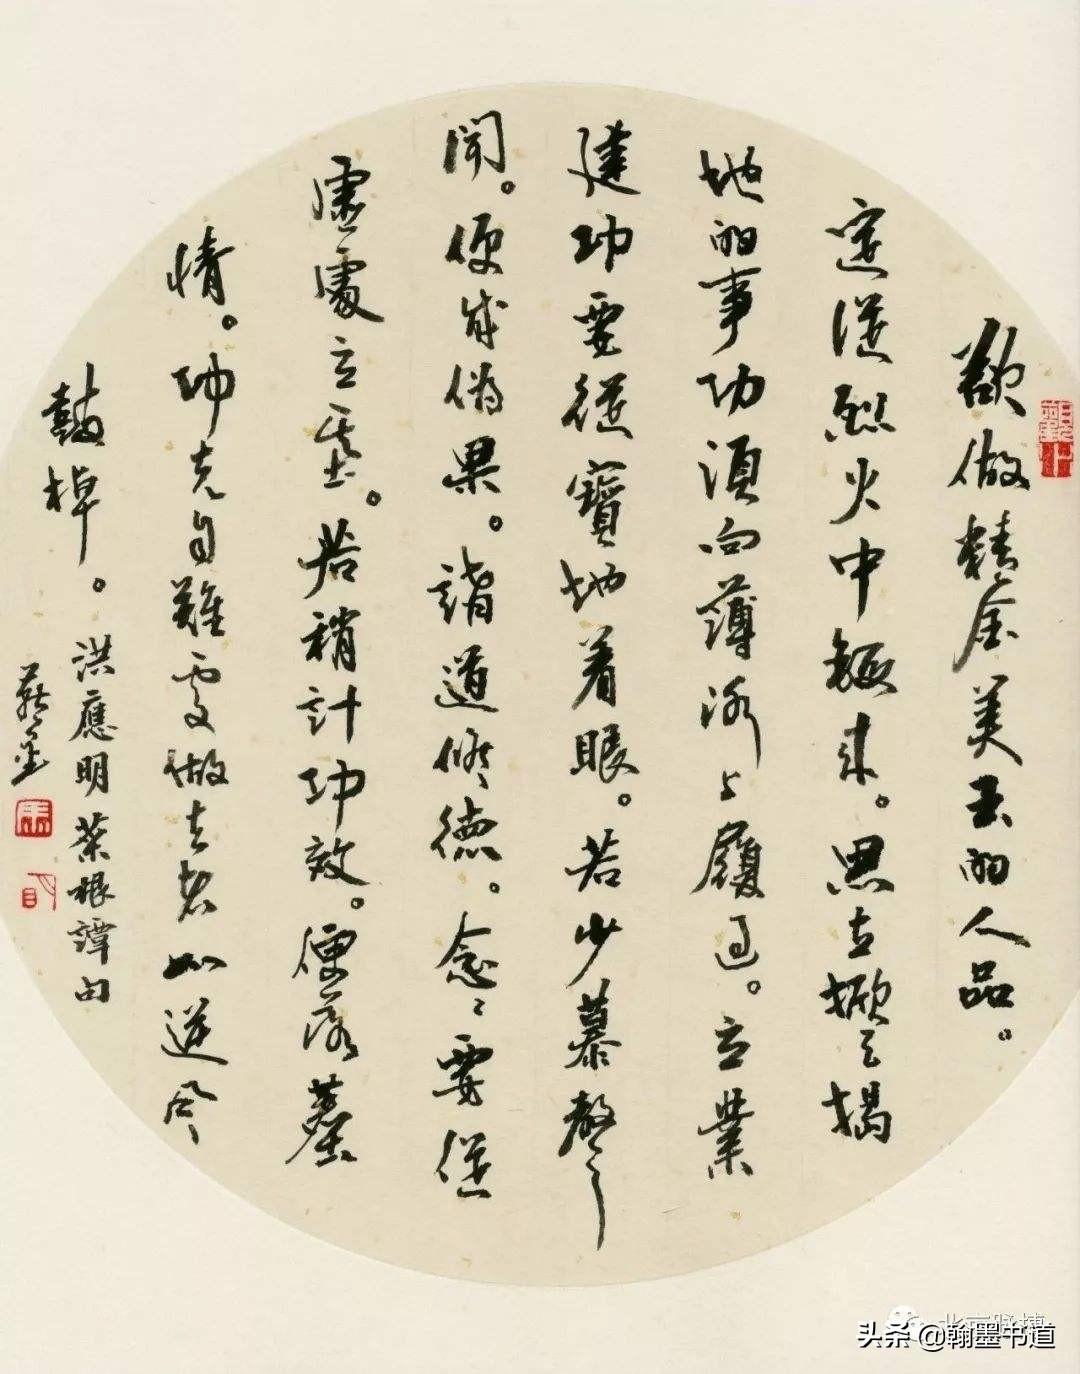 欲做精金美玉的人品。
定從烈火中鍛来。思立掀天揭
地的事功須向薄冰上履過。立業
建功要從實地着眼。若少慕聲
聞。便成偽果。講道修德。念々要從
虛處立基。若稍計功效。便落塵
情。功夫自難處做去者如逆風
鼓棹。
洪應明菜根譚句
头条 @翰墨书道